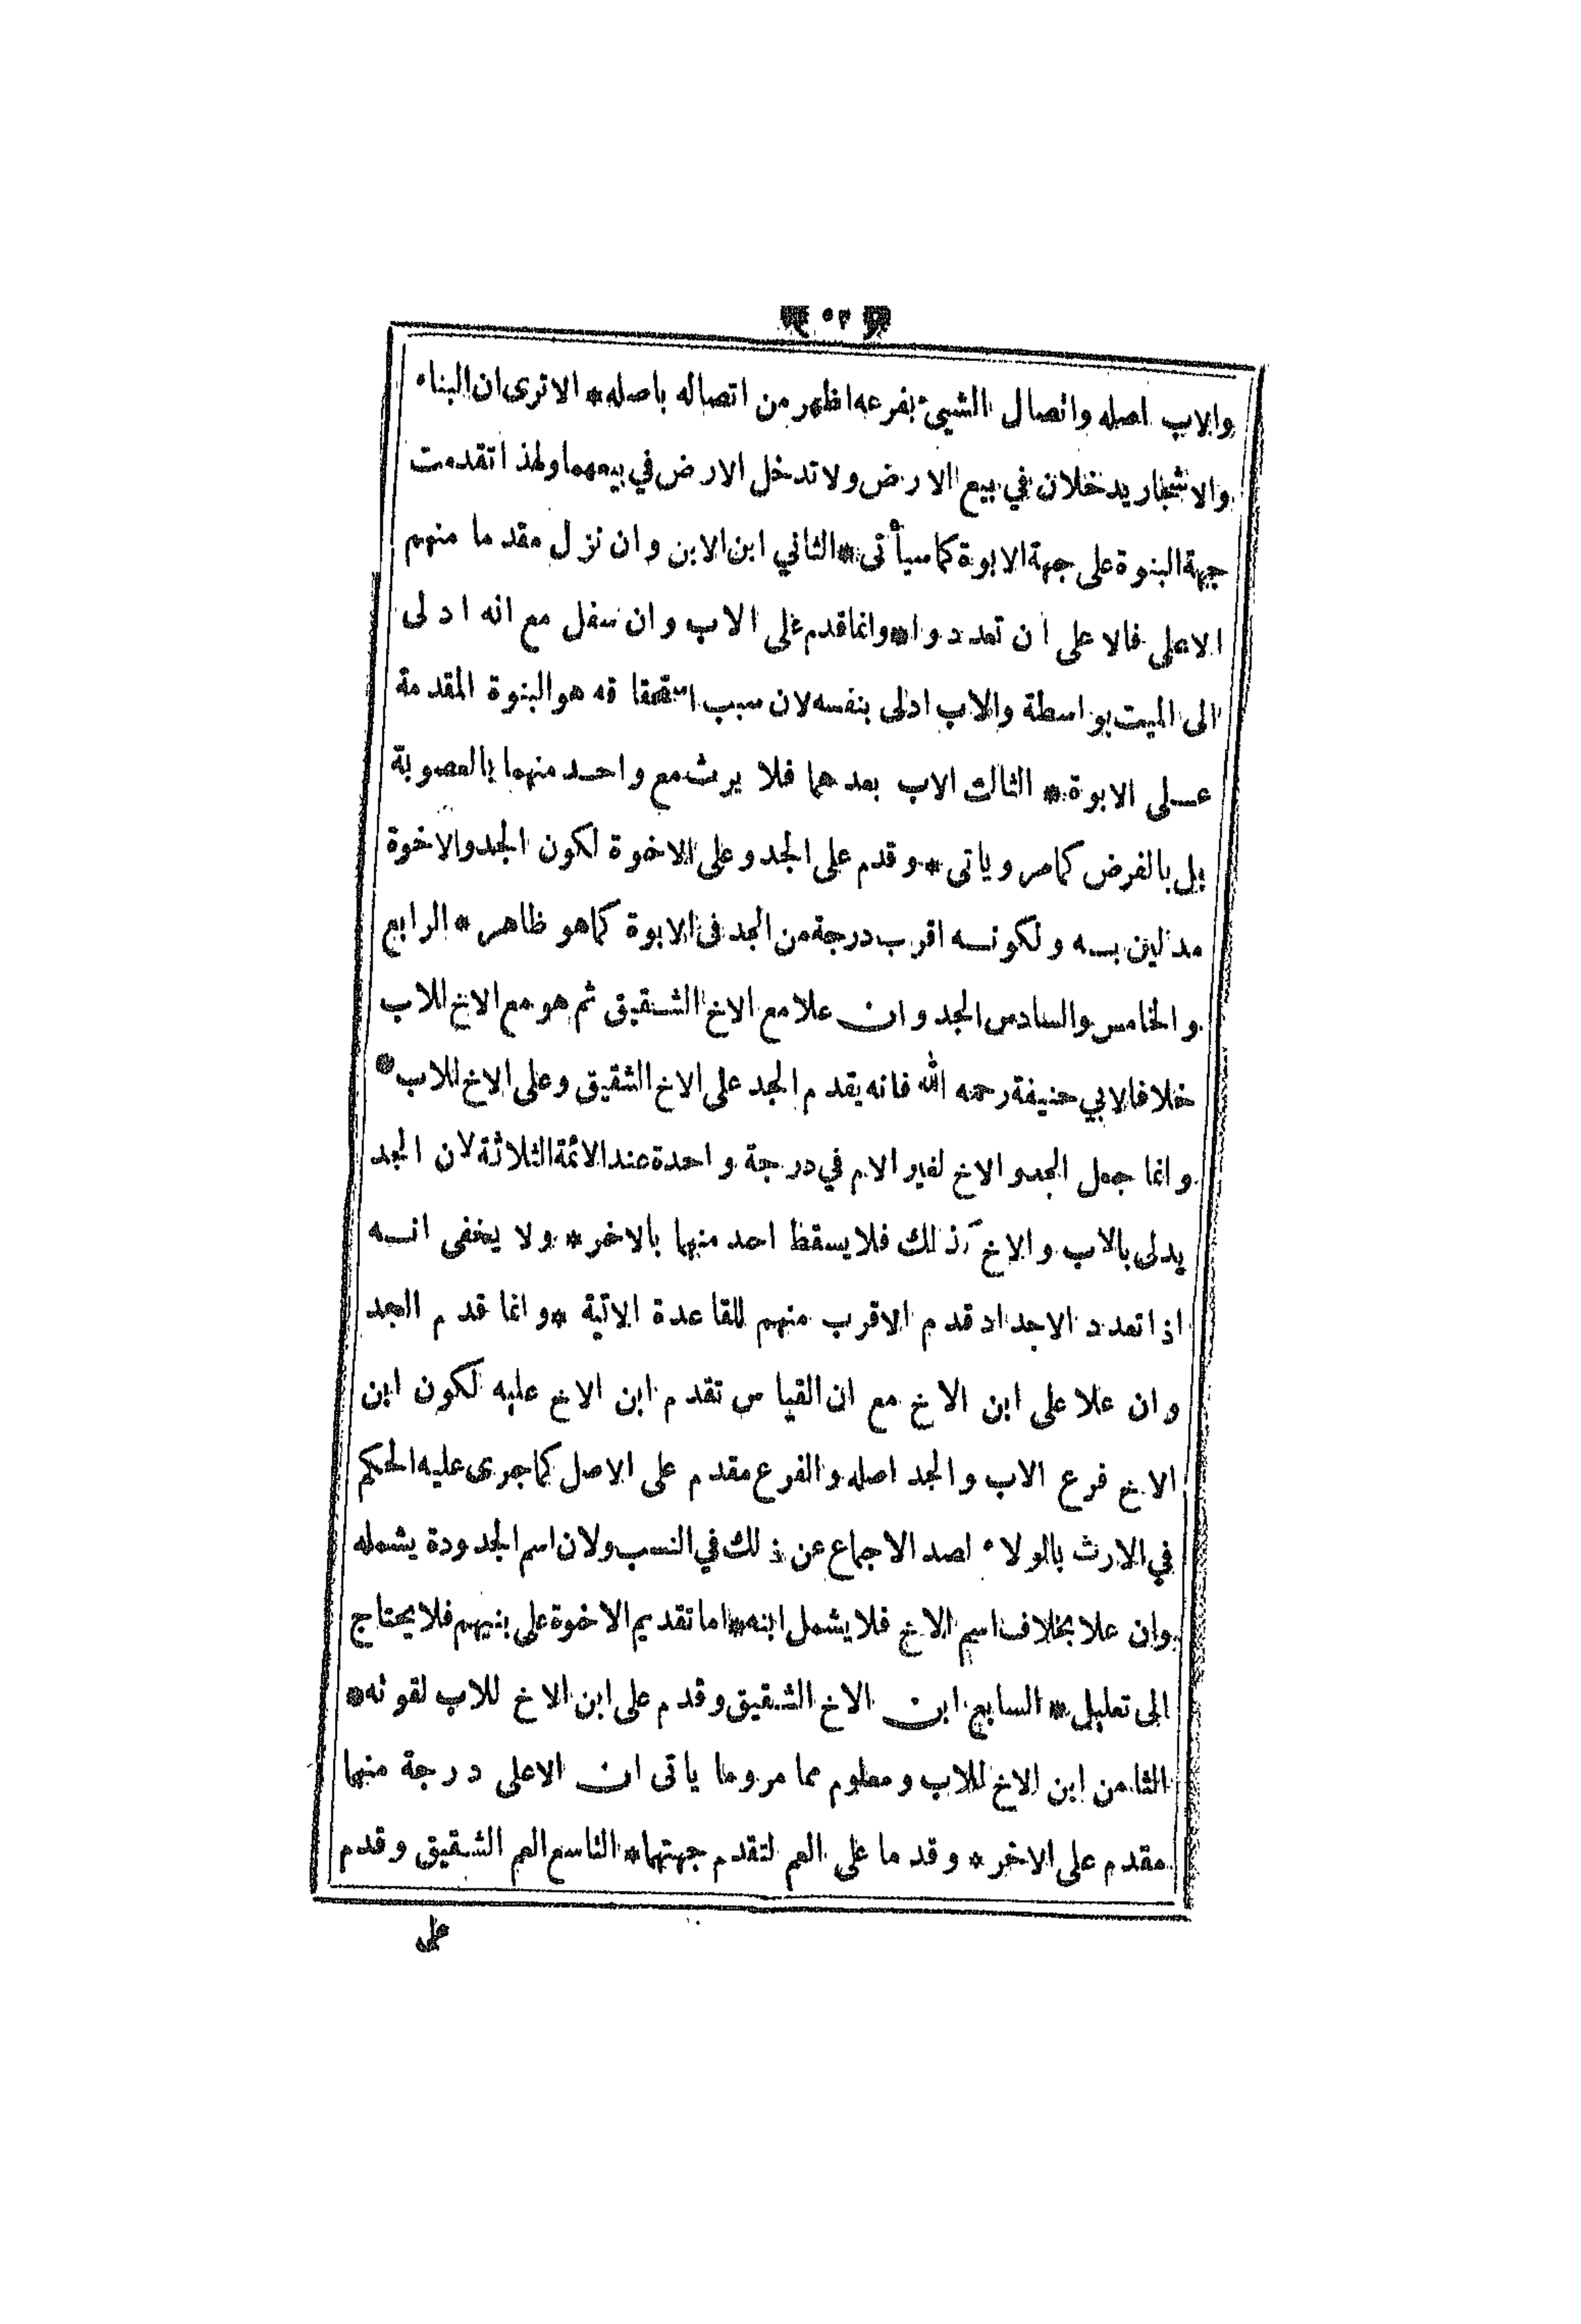 ﴿ ٥٣ ﴾
والاب اصله واتصال الشيئ بفرعه اظهر من اتصاله باصله * الا ترى ان البناء
والاشجار يدخلان في بيع الارض ولا تدخل الارض في بيعهما ولهذا تقدمت
جهة البنوة على جهة الابوة كما سيأتى * الثاني ابن الابن وان نزل مقدما منهم
الاعلى فالاعلى ان تعددوا * وانما قدم على الاب وان سفل مع انه ادلى
الى الميت بواسطة والاب ادلى بنفسه لان سبب استحقاقه هو البنوة المقدمة
عـلى الابوة * الثالث الاب بعدهما فلا يرث مع واحد منهما بالعصوبة
بل بالفرض كما مر وياتى * وقدم على الجد وعلى الاخوة لكون الجد والاخوة
مدلين بـه ولكونـه اقرب درجة من الجد فى الابوة كما هو ظاهر * الرابع
والخامس والسادس الجد وان علا مع الاخ الشقيق ثم هو مع الاخ للاب
خلافا لابي حنيفة رحمه الله فانه يقدم الجد على الاخ الشقيق وعلى الاخ للاب *
وانما جعل الجد والاخ لغير الام في درجة واحدة عند الائمة الثلاثة لان الجد
يدلى بالاب والاخ كذلك فلا يسقط احد منهما بالاخر * ولا يخفى انـه
اذا تعدد الاجداد قدم الاقرب منهم للقاعدة الاتية * وانما قدم الجد
وان علا على ابن الاخ مع ان القياس تقدم ابن الاخ عليه لكون ابن
الاخ فرع الاب والجد اصله والفرع مقدم على الاصل كما جرى عليه الحكم
في الارث بالولاء لصد الاجماع عن ذلك في النسب ولان اسم الجدودة يشمله
وان علا بخلاف اسم الاخ فلا يشمل ابنه * اما تقديم الاخوة على بنيهم فلا يحتاج
الى تعليل * السابع ابن الاخ الشقيق وقدم على ابن الاخ للاب لقوته *
الثامن ابن الاخ للاب ومعلوم مما مر وما ياتى ان الاعلى درجة منهما
مقدم على الاخر * وقدما على العم لتقدم جهتهما * التاسع العم الشقيق وقدم
على